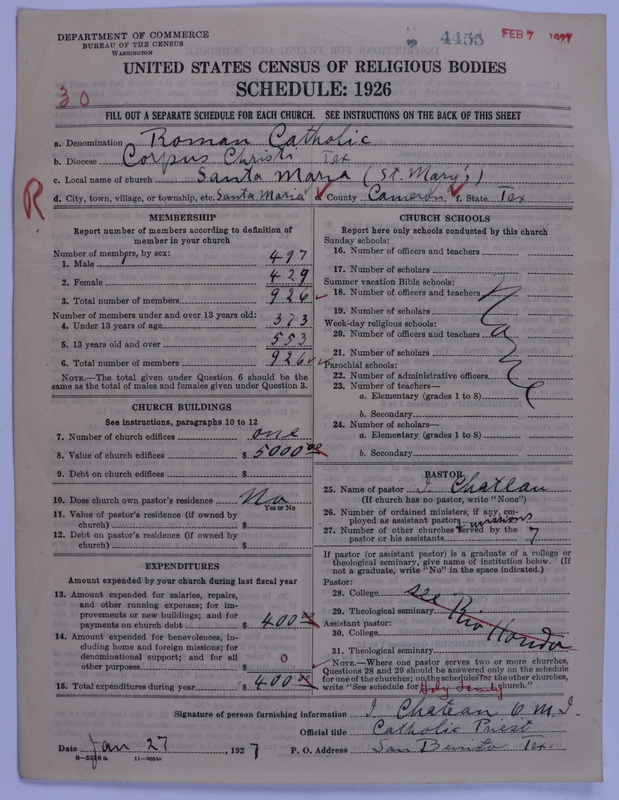 DEPARTMENT OF COMMERCE
BUREAU OF THE CENSUS
WASHINGTON
4455 FEB 7 1927
UNITED STATES CENSUS OF RELIGIOUS BODIES
SCHEDULE: 1926
30
FILL OUT A SEPARATE SCHEDULE FOR EACH CHURCH. SEE INSTRUCTIONS ON THE BACK OF THIS SHEET
a. Denomination Roman Catholic
b. Diocese Corpus Christi Tex
c. Local name of church Santa Maria (St. Mary's)
R
d. City, town, village, or township, etc. Santa Maria e. County Cameron f. State Tex
MEMBERSHIP
Report number of members according to definition of
member in your church
Number of members, by sex:
1. Male 497
2. Female 429
3. Total number of members 926
Number of members under and over 13 years old:
4. Under 13 years of age 373
5. 13 years old and over 553
6. Total number of members 926
NOTE.—The total given under Question 6 should be the
same as the total of males and females given under Question 3.
CHURCH BUILDINGS
See instructions, paragraphs 10 to 12
7. Number of church edifices one
8. Value of church edifices $ 5000 00
9. Debt on church edifices $
10. Does church own pastor's residence No
Yes or No
11. Value of pastor's residence (if owned by
church) $
12. Debt on pastor's residence (if owned by
church) $
EXPENDITURES
Amount expended by your church during last fiscal year
13. Amount expended for salaries, repairs,
and other running expenses; for im-
provements or new buildings; and for
payments on church debt $ 400 00
14. Amount expended for benevolences, in-
cluding home and foreign missions; for
denominational support; and for all
other purposes $ 0
15. Total expenditures during year $ 400 00
CHURCH SCHOOLS
Report here only schools conducted by this church
Sunday schools:
16. Number of officers and teachers
17. Number of scholars
Summer vacation Bible schools:
18. Number of officers and teachers
19. Number of scholars
Week-day religious schools:
20. Number of officers and teachers
21. Number of scholars
Parochial schools:
22. Number of administrative officers
23. Number of teachers—
a. Elementary (grades 1 to 8)
b. Secondary
24. Number of scholars—
a. Elementary (grades 1 to 8)
b. Secondary
None
PASTOR
25. Name of pastor I. Chateau
(If church has no pastor, write "None")
26. Number of ordained ministers, if any, em-
ployed as assistant pastors
missions
27. Number of other churches served by the
pastor or his assistants 7
If pastor (or assistant pastor) is a graduate of a college or
theological seminary, give name of institution below. (If
not a graduate, write "No" in the space indicated.)
Pastor:
28. College see Rio Hondo
29. Theological seminary
Assistant pastor:
30. College
31. Theological seminary
NOTE.—Where one pastor serves two or more churches,
Questions 28 and 29 should be answered only on the schedule
for one of the churches; on the schedules for the other churches,
write "See schedule for Holy Family church."
Signature of person furnishing information I. Chateau O M I
Official title Catholic Priest
Date Jan 27, 1927 P. O. Address San Benito Tex.
8—5318 a